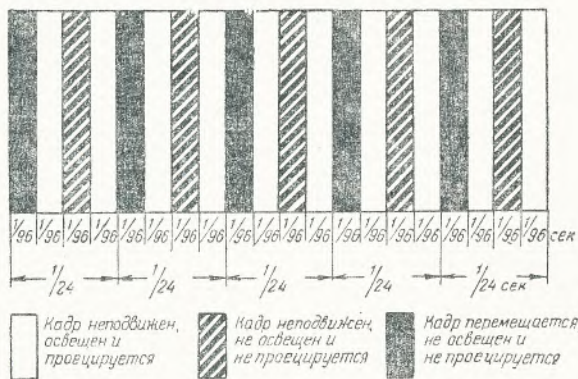 1/96 1/96 1/96 1/96 1/96 1/96 1/96 1/96 1/96 1/96 1/96 1/96 1/96 1/96 1/96 1/96 1/96 1/96 1/96 1/96 сек
1/24 1/24 1/24 1/24 1/24 сек
Кадр неподвижен,
освещен и
проецируется
Кадр неподвижен,
не освещен и
не проецируется
Кадр перемещается
не освещен и
не проецируется